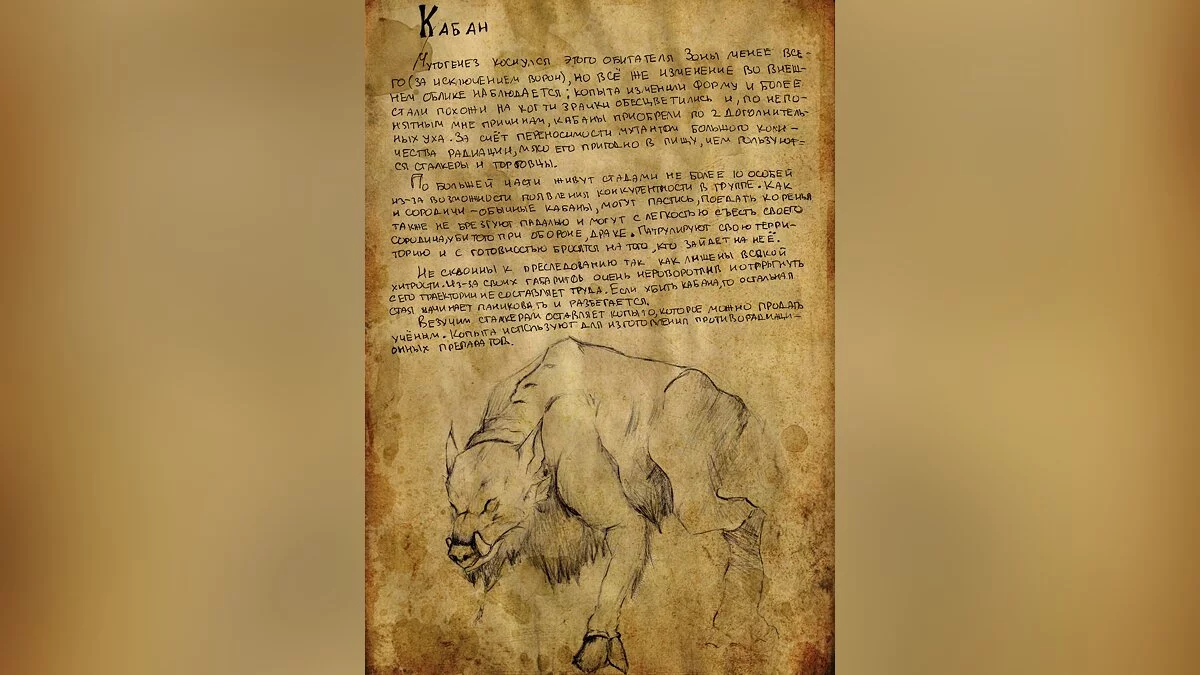 Кабан
Мутогенез коснулся этого обитателя Зоны менее все-
го (за исключением ворон), но всё же изменение во внеш-
нем облике наблюдается; копыта изменили форму и более
стали похожи на когти зрачки обесцветились и, по непо-
нятным мне причинам, кабаны приобрели по 2 дополнитель-
ных уха. За счёт переносимости мутантом большого коли-
чества радиации, мясо его пригодно в пищу, чем пользуют-
ся сталкеры и торговцы.
По большей части живут стадами не более 10 особей
из-за возможности появления конкурентности в группе. Как
и сородичи - обычные кабаны, могут пастись, поедать коренья
также не брезгуют падалью и могут с легкостью съесть своего
сородича, убитого при обороне, драке. Патрулируют свою терри-
торию и с готовностью бросятся на того, кто зайдет на неё.
Не склонны к преследованию так как лишены всякой
хитрости. Из-за своих габаритов очень неповоротлив и отпрыгнуть
с его траектории не составляет труда. Если убить кабана, то остальная
стая начинает паниковать и разбегается.
Везучим сталкерам оставляет копыто, которое можно продать
учёным. Копыта используют для изготовления противорадиаци-
онных препаратов.